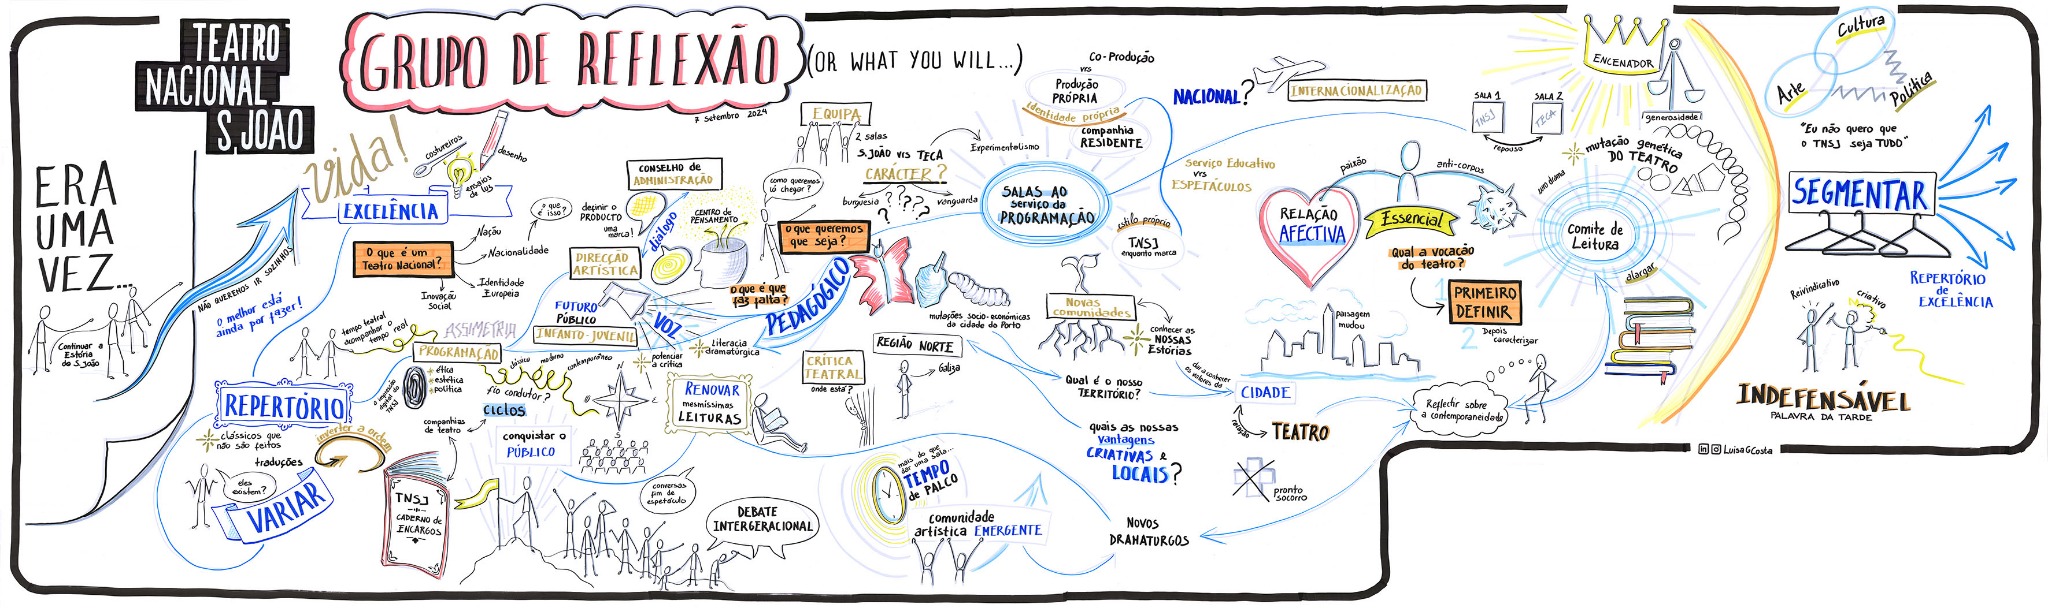 TEATRO
NACIONAL
S. JOÃO
GRUPO DE REFLEXÃO
(OR WHAT YOU WILL...)
7 Setembro 2024
ERA
UMA
VEZ...
Continuar a
Estória
do S. João
NÃO QUEREMOS IR SOZINHOS
O melhor está
ainda por fazer!
vida!
EXCELÊNCIA
costureiros
desenho
ensaios
de luz
O que é um
Teatro Nacional?
Nação
Nacionalidade
o que
é isso?
Identidade
Europeia
Inovação
Social
definir o
PRODUTO
uma marca!
CONSELHO de
ADMINISTRAÇÃO
diálogo
DIRECÇÃO
ARTÍSTICA
CENTRO DE
PENSAMENTO
como queremos
lá chegar?
o que queremos
que seja?
O que é que
faz falta?
EQUIPA
2 salas
S. JOÃO vrs TECA
CARÁCTER?
burguesia
vanguarda
????
Experimentalismo
Co-Produção
vrs
Produção
PRÓPRIA
identidade própria
companhia
RESIDENTE
SALAS AO
serviço da
PROGRAMAÇÃO
estilo próprio
TNSJ
enquanto marca
Serviço Educativo
vrs
ESPETÁCULOS
NACIONAL?
INTERNACIONALIZAÇÃO
SALA 1
TNSJ
SALA 2
TECA
repouso
ENCENADOR
generosidade!
mutação genética
DO TEATRO
zero drama
Comite de
Leitura
alargar
RELAÇÃO
AFECTIVA
paixão
anti-corpos
Essencial
Qual a vocação
do teatro?
1
PRIMEIRO
DEFINIR
2
Depois
caracterizar
paisagem
mudou
Cultura
Arte
Política
"Eu não quero que
o TNSJ seja TUDO"
SEGMENTAR
REPERTÓRIO
de
EXCELÊNCIA
Reivindicativo
criativo
INDEFENSÁVEL
PALAVRA DA TARDE
LuisaGCosta
tempo teatral
acompanhar o
tempo real
ASSIMETRIA
PROGRAMAÇÃO
ética
estética
política
a impressão
digital do
TNSJ
clássico
moderno
contemporâneo
fio condutor?
ciclos
companhias
de teatro
FUTURO
PÚBLICO
INFANTO-JUVENIL
VOZ
PEDAGÓGICO
Literacia
dramatúrgica
potenciar
a crítica
mutações socio-económicas
da cidade do Porto
REGIÃO NORTE
Galiza
CRÍTICA
TEATRAL
onde está?
RENOVAR
mesmíssimas
LEITURAS
S
conquistar o
PÚBLICO
REPERTÓRIO
clássicos que
não são feitos
inverter a ordem
traduções
eles
existem?
VARIAR
TNSJ
CADERNO de
ENCARGOS
conversas
fim de
espetáculo
DEBATE
INTERGERACIONAL
mais do que
dar uma sala...
TEMPO
de PALCO
comunidade
artística EMERGENTE
NOVOS
DRAMATURGOS
NOVAS
comunidades
conhecer as
NOSSAS
Estórias
Qual é o nosso
TERRITÓRIO?
quais as nossas
vantagens
CRIATIVAS e
LOCAIS?
dar a conhecer
os valores da
CIDADE
relação
TEATRO
pronto
socorro
Reflectir sobre
a contemporaneidade